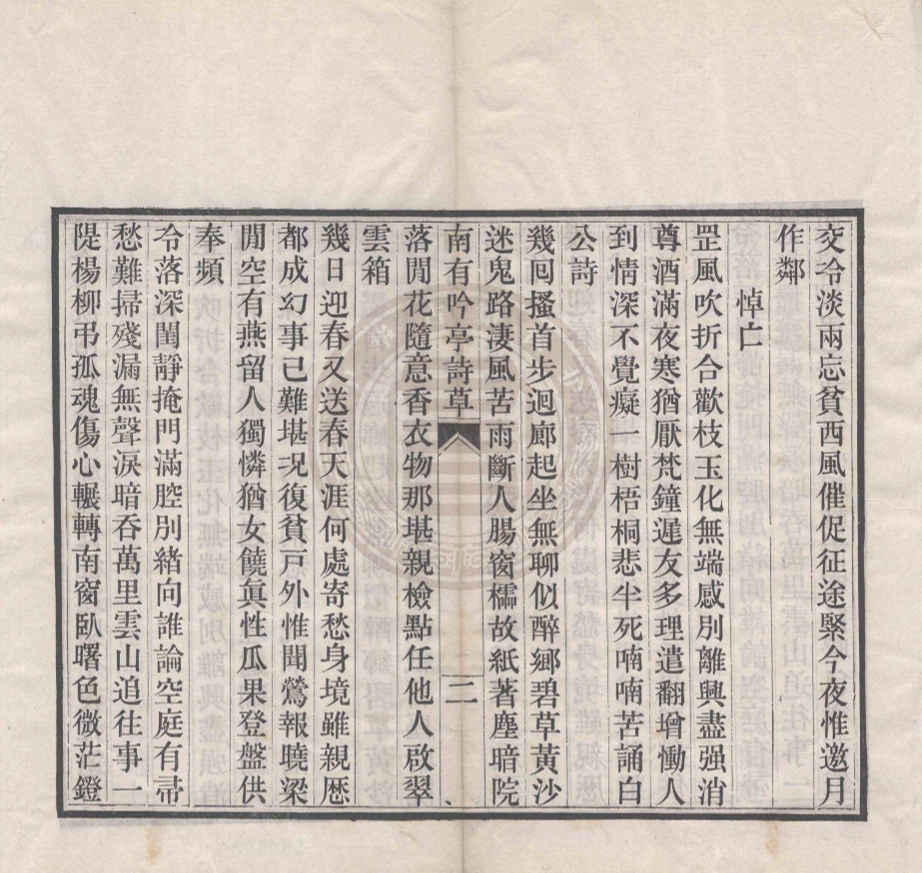 交冷淡兩忘貧西風催促征途緊今夜惟邀月
作鄰
悼亡
罡風吹折合歡枝玉化無端感別離興盡强消
尊酒滿夜寒猶厭梵鐘遲友多理遣翻增慟人
到情深不覺癡一樹梧桐悲半死喃喃苦誦白
公詩
幾囘搔首步迴廊起坐無聊似醉鄉碧草黃沙
迷鬼路淒風苦雨斷人腸窗櫺故紙著塵暗院
南有吟亭詩草
二
落閒花隨意香衣物那堪親檢點任他人啟翠
雲箱
幾日迎春又送春天涯何處寄愁身境雖親歷
都成幻事已難堪况復貧戸外惟聞鶯報曉梁
閒空有燕留人獨憐猶女饒眞性瓜果登盤供
奉頻
冷落深閨靜掩門滿腔別緒向誰論空庭有帚
愁難掃殘漏無聲淚暗吞萬里雲山追往事一
隄楊柳弔孤魂傷心輾轉南窗臥曙色微茫鐙